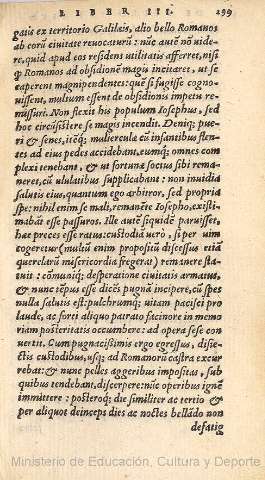 LIBER III. 299
gatis ex territorio Galilæis, alio bello Romanos
ab eorū ciuitate reuocaturū: nūc autē nō uide-
re, quid apud eos residens utilitatis afferret, nisi
q̃ Romanos ad obsidionē magis incitaret, ut se
caperent magnipendentes: quē si fugisse cogno-
uissent, multum essent de obsidionis impetu re-
missuri. Non flexit his populum Iosephus, sed
hoc circūsistere se magis incendit. Deniq; pue-
ri & senes, itēq; mulierculæ cū infantibus flen-
tes ad eius pedes accidebant, eumq; omnes com
plexi tenebant, & ut fortunæ socius sibi rema-
neret, cū ululatibus supplicabant: non inuidia
salutis eius, quantum ego arbitror, sed propria
spe: nihil enim se mali, remanēte Iosepho, existi-
mabāt esse passuros. Ille autē siquidē paruisset,
hæc preces esse ratus: custodiā uerò, si per uim
cogeretur (multū enim propositū discessus etiā
querelarū misericordia fregerat) remanere sta-
tuit: cōmuniq; desperatione ciuitatis armatus,
& nunc tēpus esse dicēs pugnā incipere, cū spes
nulla salutis est: pulchrumq; uitam pacisci pro
laude, ac forti aliquo patrato facinore in memo
riam posteritatis occumbere: ad opera sese con
uertit. Cum pugnacissimis ergo egressus, disie-
ctis custodibus, usq; ad Romanorū castra excur
rebat: & nunc pelles aggeribus impositas, sub
quibus tendebant, discerpere: nūc operibus ignē
immittere: posteroq; die similiter ac tertio &
per aliquot deinceps dies ac noctes bellādo non
defatig
Ministerio de Educación, Cultura y Deporte